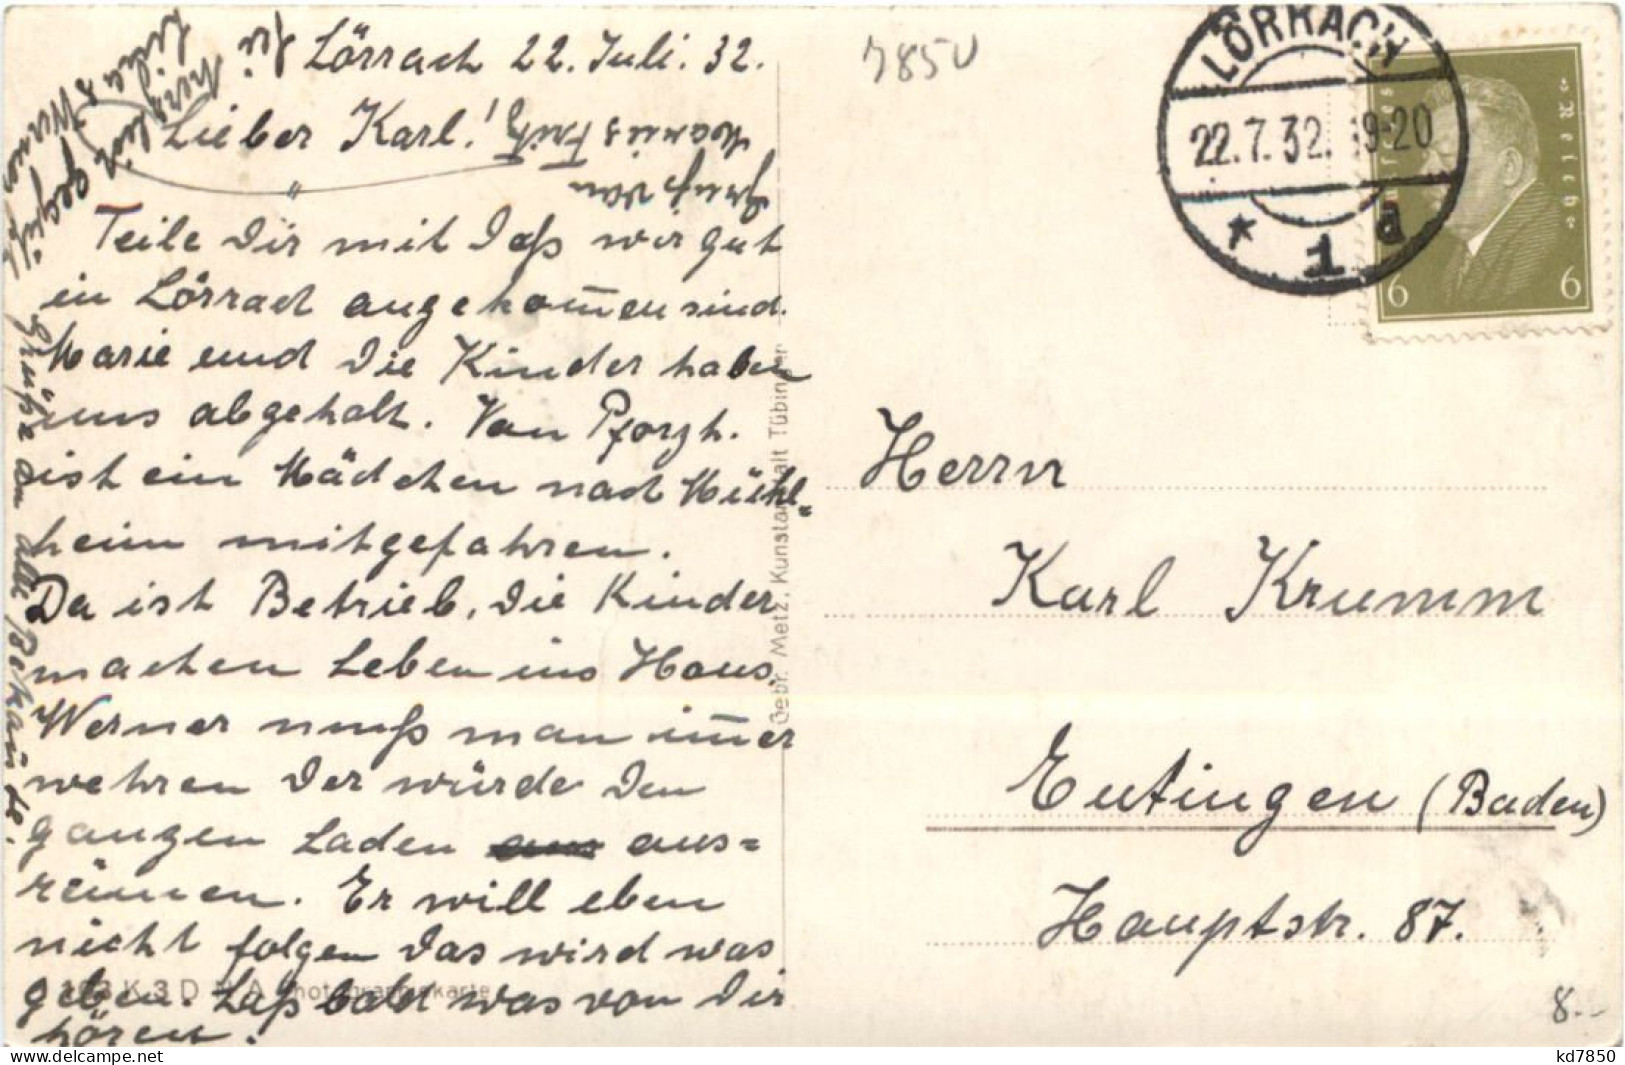 Lörrach 22. Juli. 32.
Lieber Karl!
Teile Dir mit daß wir gut
in Lörrach angekom̅en sind.
Marie und die Kinder haben
uns abgeholt. Von Pforzh.
ist ein Mädchen nach Mühl=
heim mitgefahren.
Da ist Betrieb, die Kinder
machen Leben ins Haus.
Werner muß man im̅er
wehren der würde den
ganzen Laden aus=
räumen. Er will eben
nicht folgen das wird was
geben. Laß bald was von Dir
hören!
Grüße an alle Bekannte.
Gruß von
Fritz
herzlich
Werner
7850
LÖRRACH
22.7.32. 19-20
* 1 a
Deutsches Reich
6 6
Gebr. Metz, Kunstanstalt Tübingen
Herrn
Karl Krumm
Eutingen (Baden)
Hauptstr. 87.
8.-
kd7850